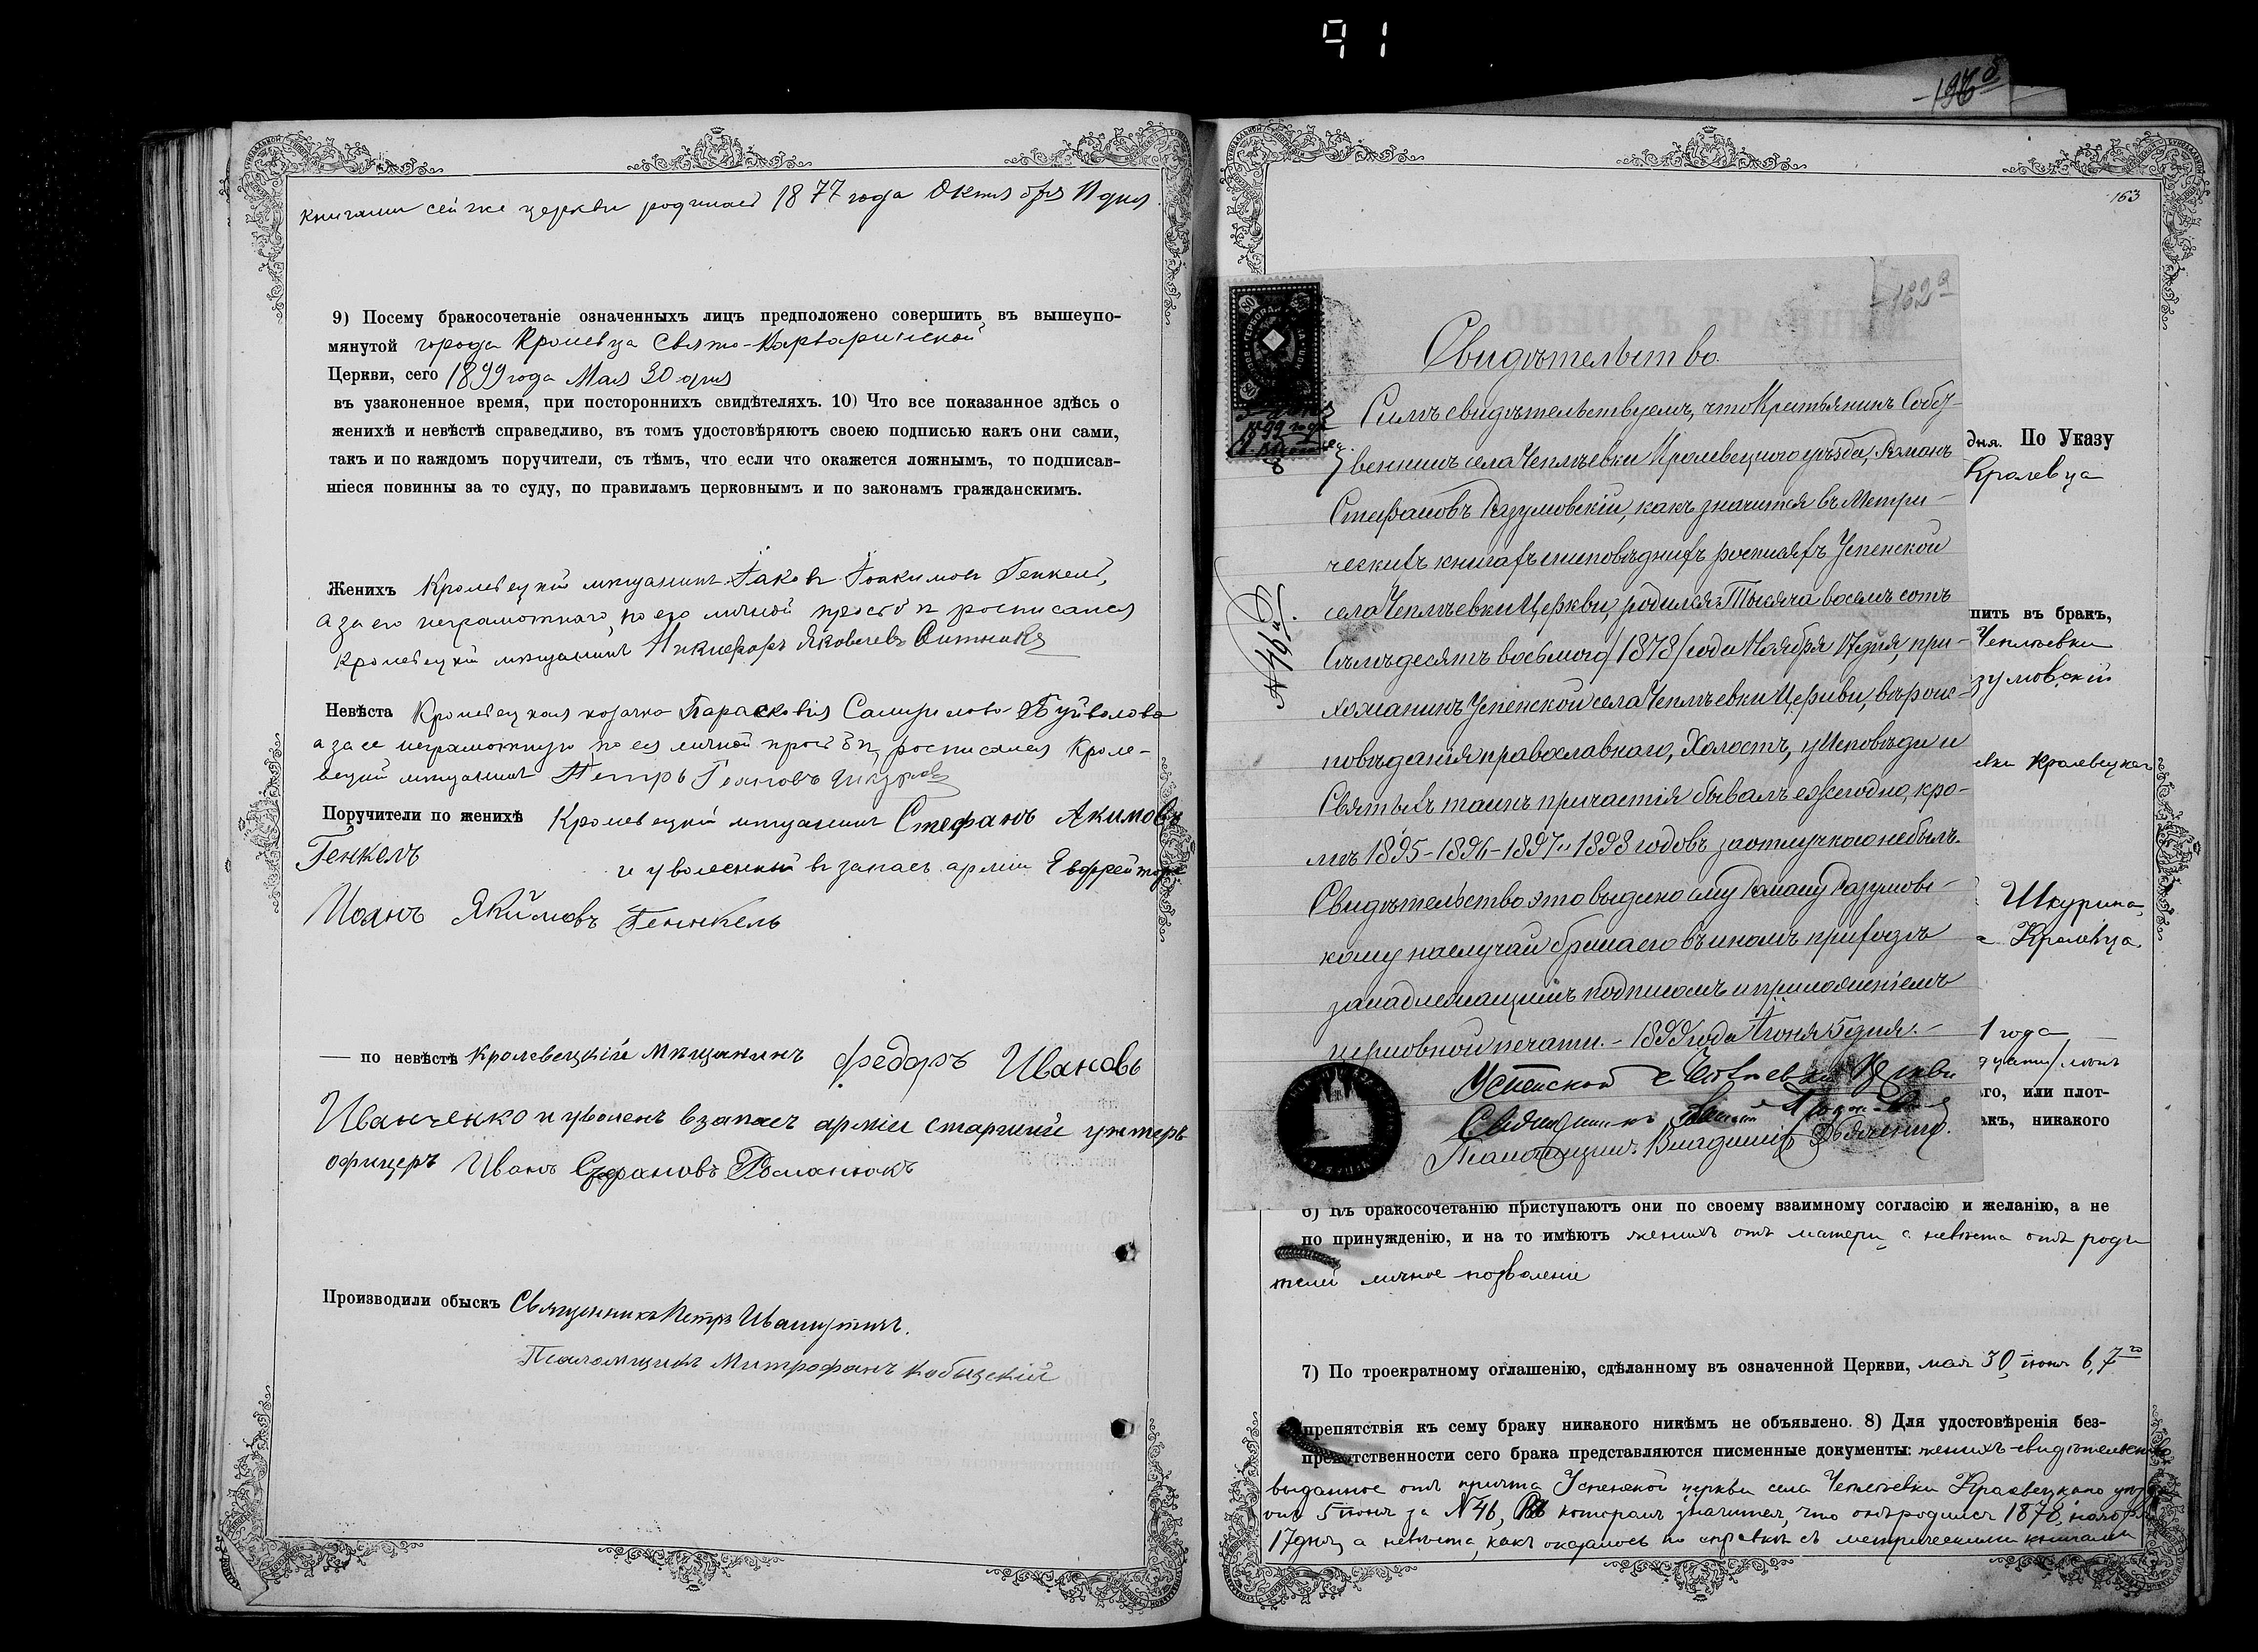 91
книгами сей же церкви родилась 1877 года Октября 11 дня.
9) Посему бракосочетаніе означенныхъ лицъ предположено совершить въ вышеупо-
мянутой города Кролевца Свято-Варваринской
Церкви, сего 1899 года Мая 30 дня
въ узаконенное время, при постороннихъ свидѣтеляхъ. 10) Что все показанное здѣсь о
женихѣ и невѣстѣ справедливо, въ томъ удостовѣряютъ своею подписью какъ они сами,
такъ и по каждомъ поручители, съ тѣмъ, что если что окажется ложнымъ, то подписав-
шіеся повинны за то суду, по правиламъ церковнымъ и по законамъ гражданскимъ.
Женихъ Кролевецкій мѣщанинъ Іаковъ Іоакимовъ Генкель,
а за его неграмотнаго, по его личной просьбѣ росписался
Кролевецкій мѣщанинъ Никифоръ Яковлевъ Ситникъ
Невѣста Кролевецкая козачка Параскевія Самуилова Буйволова
а за ее неграмотную по ея личной просьбѣ, росписался Кроле-
вецкій мѣщанинъ Петръ Іоанновъ
Поручители по женихѣ Кролевецкій мѣщанинъ Стефанъ Акимовъ
Генкель
и уволенный въ запасъ арміи Ефрейторъ
Иоанъ Якимовъ Геннкель
— по невѣстѣ Кролевецкій мѣщанинъ Федоръ Ивановъ
Иванченко и уволенъ в запасъ арміи старшій унтеръ
офицеръ Иванъ Стефановъ Романюкъ
Производили обыскъ Священникъ Петръ Ивашутичъ.
Псаломщикъ Митрофанъ Кобыцскій
163
162а
Свидѣтельство.
Симъ свидѣтельствуемъ, что Крестьянинъ Собст-
венникъ села Чеплѣевки Кролевецкого уѣзда, Романъ
Стефановъ Разумовскій, какъ значится въ Метри-
ческихъ книгахъ и исповѣдныхъ росписяхъ Успенской
села Чеплѣевки Церкви, родился Тысяча восемь сотъ
Семьдесятъ восьмого /1878/ года Ноября 17 дня, при-
хожанинъ Успенской села Чеплѣевки Церкви, вѣроис-
повѣданія православнаго, Холостъ, у Исповѣди и
Святыхъ таинъ причастія бывалъ ежегодно, кро-
мѣ 1895-1896-1897 и 1898 годовъ за отлучкою не былъ.
Свидѣтельство это выдано ему Роману Разумовс-
кому на случай брака его въ иномъ приходѣ
за надлежащимъ подписомъ и приложеніемъ
церковной печати. - 1899 года Іюня 5 дня. -
Успенской с. Чеплѣевки Церкви
Священникъ
Псаломщикъ Владиміръ Дьяченко.
№ 46
1899 года
дня. По Указу
Кролевца
пить въ бракъ,
Чеплѣевки
зумовскій
евки Кролевецкаго
Шкурина
Кролевца
1 года
дцати/ лѣтъ
го, или плот-
акъ, никакого
6) Къ бракосочетанію приступаютъ они по своему взаимному согласію и желанію, а не
по принужденію, и на то имѣютъ женихъ отъ матери, а невѣста отъ роди
телей личное позволеніе
7) По троекратному оглашенію, сдѣланному въ означенной Церкви, мая 30, іюня 6, 7го
препятствія къ сему браку никакого никѣмъ не объявлено. 8) Для удостовѣренія без-
препятственности сего брака представляются писменные документы: женихъ-свидѣтельство
выданное отъ причта Успенской церкви села Чеплѣевки Кролевецкаго уѣзда
отъ 5 іюня за № 46, въ которомъ значится, что онъ родился 1878, ноября
17 дня, а невѣста, какъ оказалось по справкѣ съ метрическими книгами